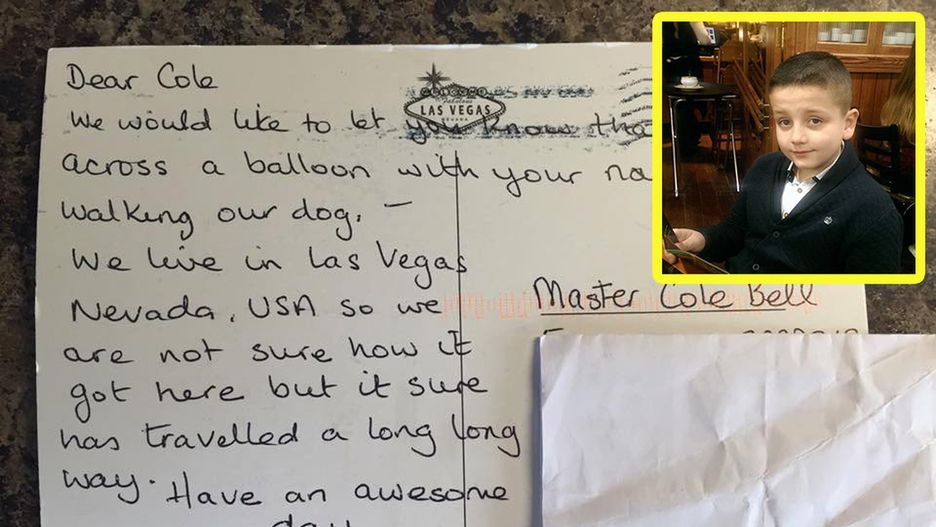 Dear Cole
Fabulous
LAS VEGAS
NEVADA
We would like to let you know tha
across a balloon with your na
walking our dog. –
We live in Las Vegas
Nevada, USA so we
are not sure how it
got here but it sure
has travelled a long long
way. Have an awesome
day
Master Cole Bell